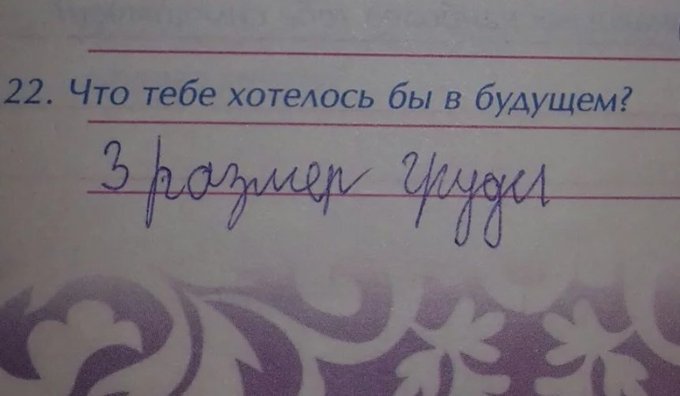 22. Что тебе хотелось бы в будущем?
3 размер груди